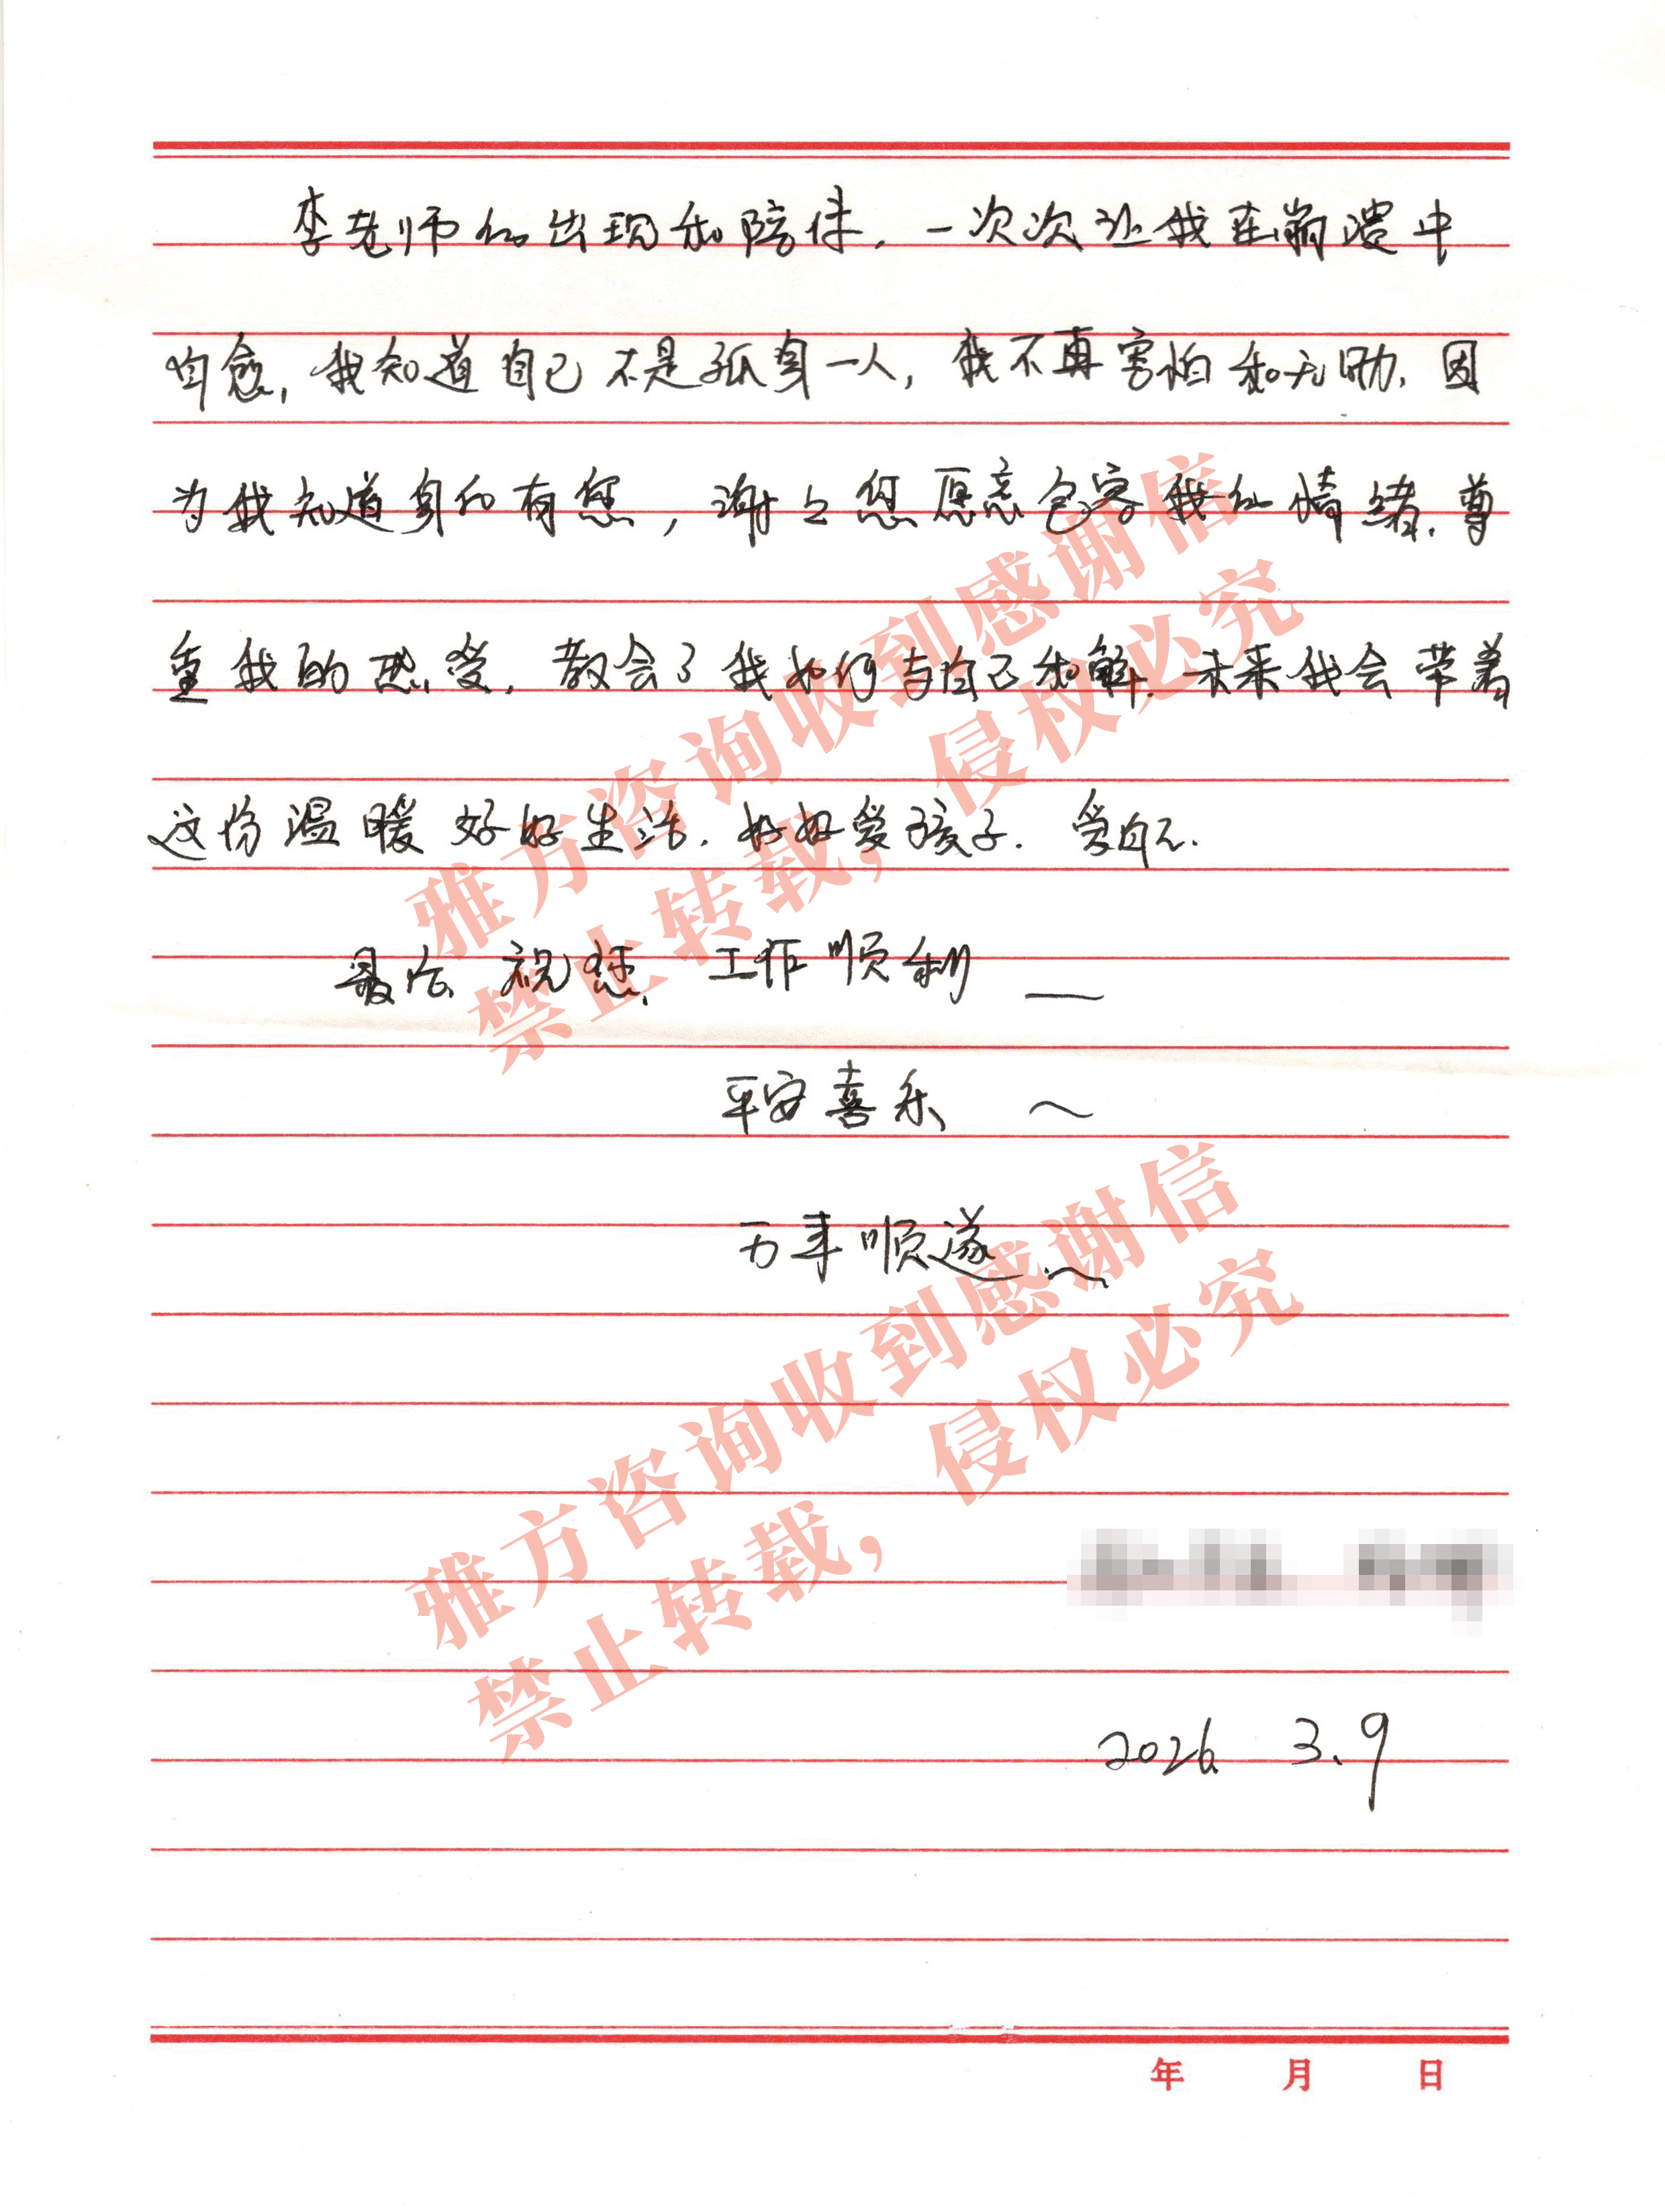 李老师的出现和陪伴，一次次让我在崩溃中
自愈，我知道自己不是孤身一人，我不再害怕和无助，因
为我知道身后有您，谢谢您愿意包容我的情绪，尊
重我的感受，教会了我如何与自己和解，未来我会带着
这份温暖好好生活，好好爱孩子，爱自己。
最后祝您，工作顺利 —
平安喜乐 ～
万事顺遂 ～
2026 3.9
年 月 日
雅方咨询收到感谢信
禁止转载，侵权必究
雅方咨询收到感谢信
禁止转载，侵权必究